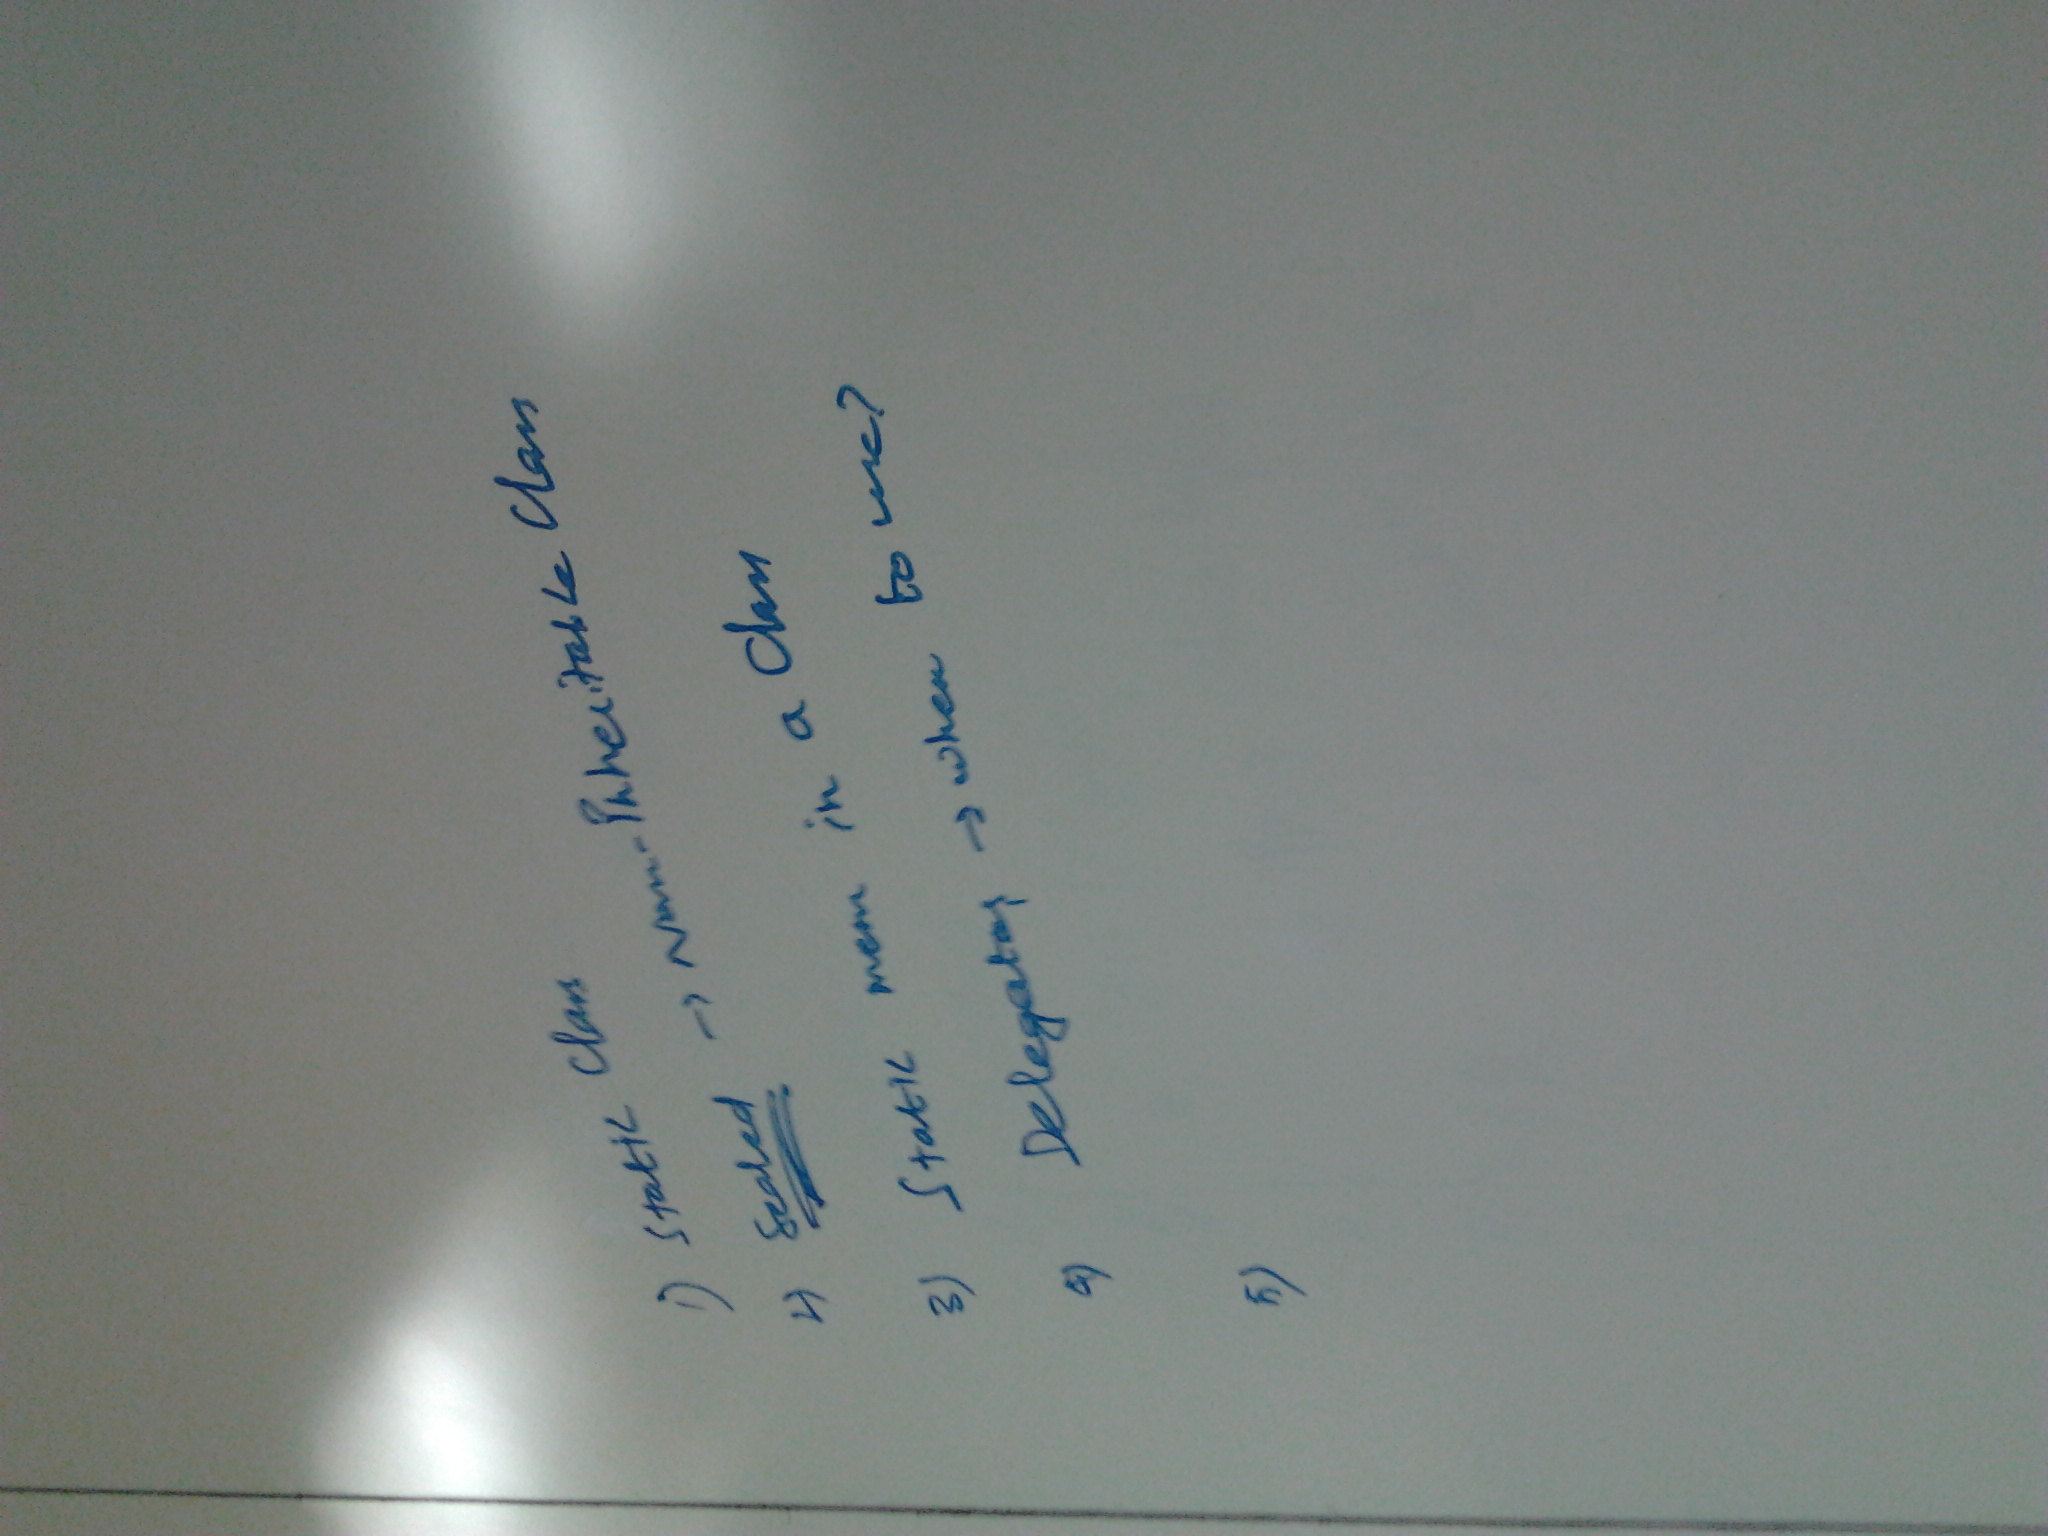 1) Static Class
2) Sealed → Non-Inheritable Class
3) Static mem in a Class
4) Delegates → when to use?
5)